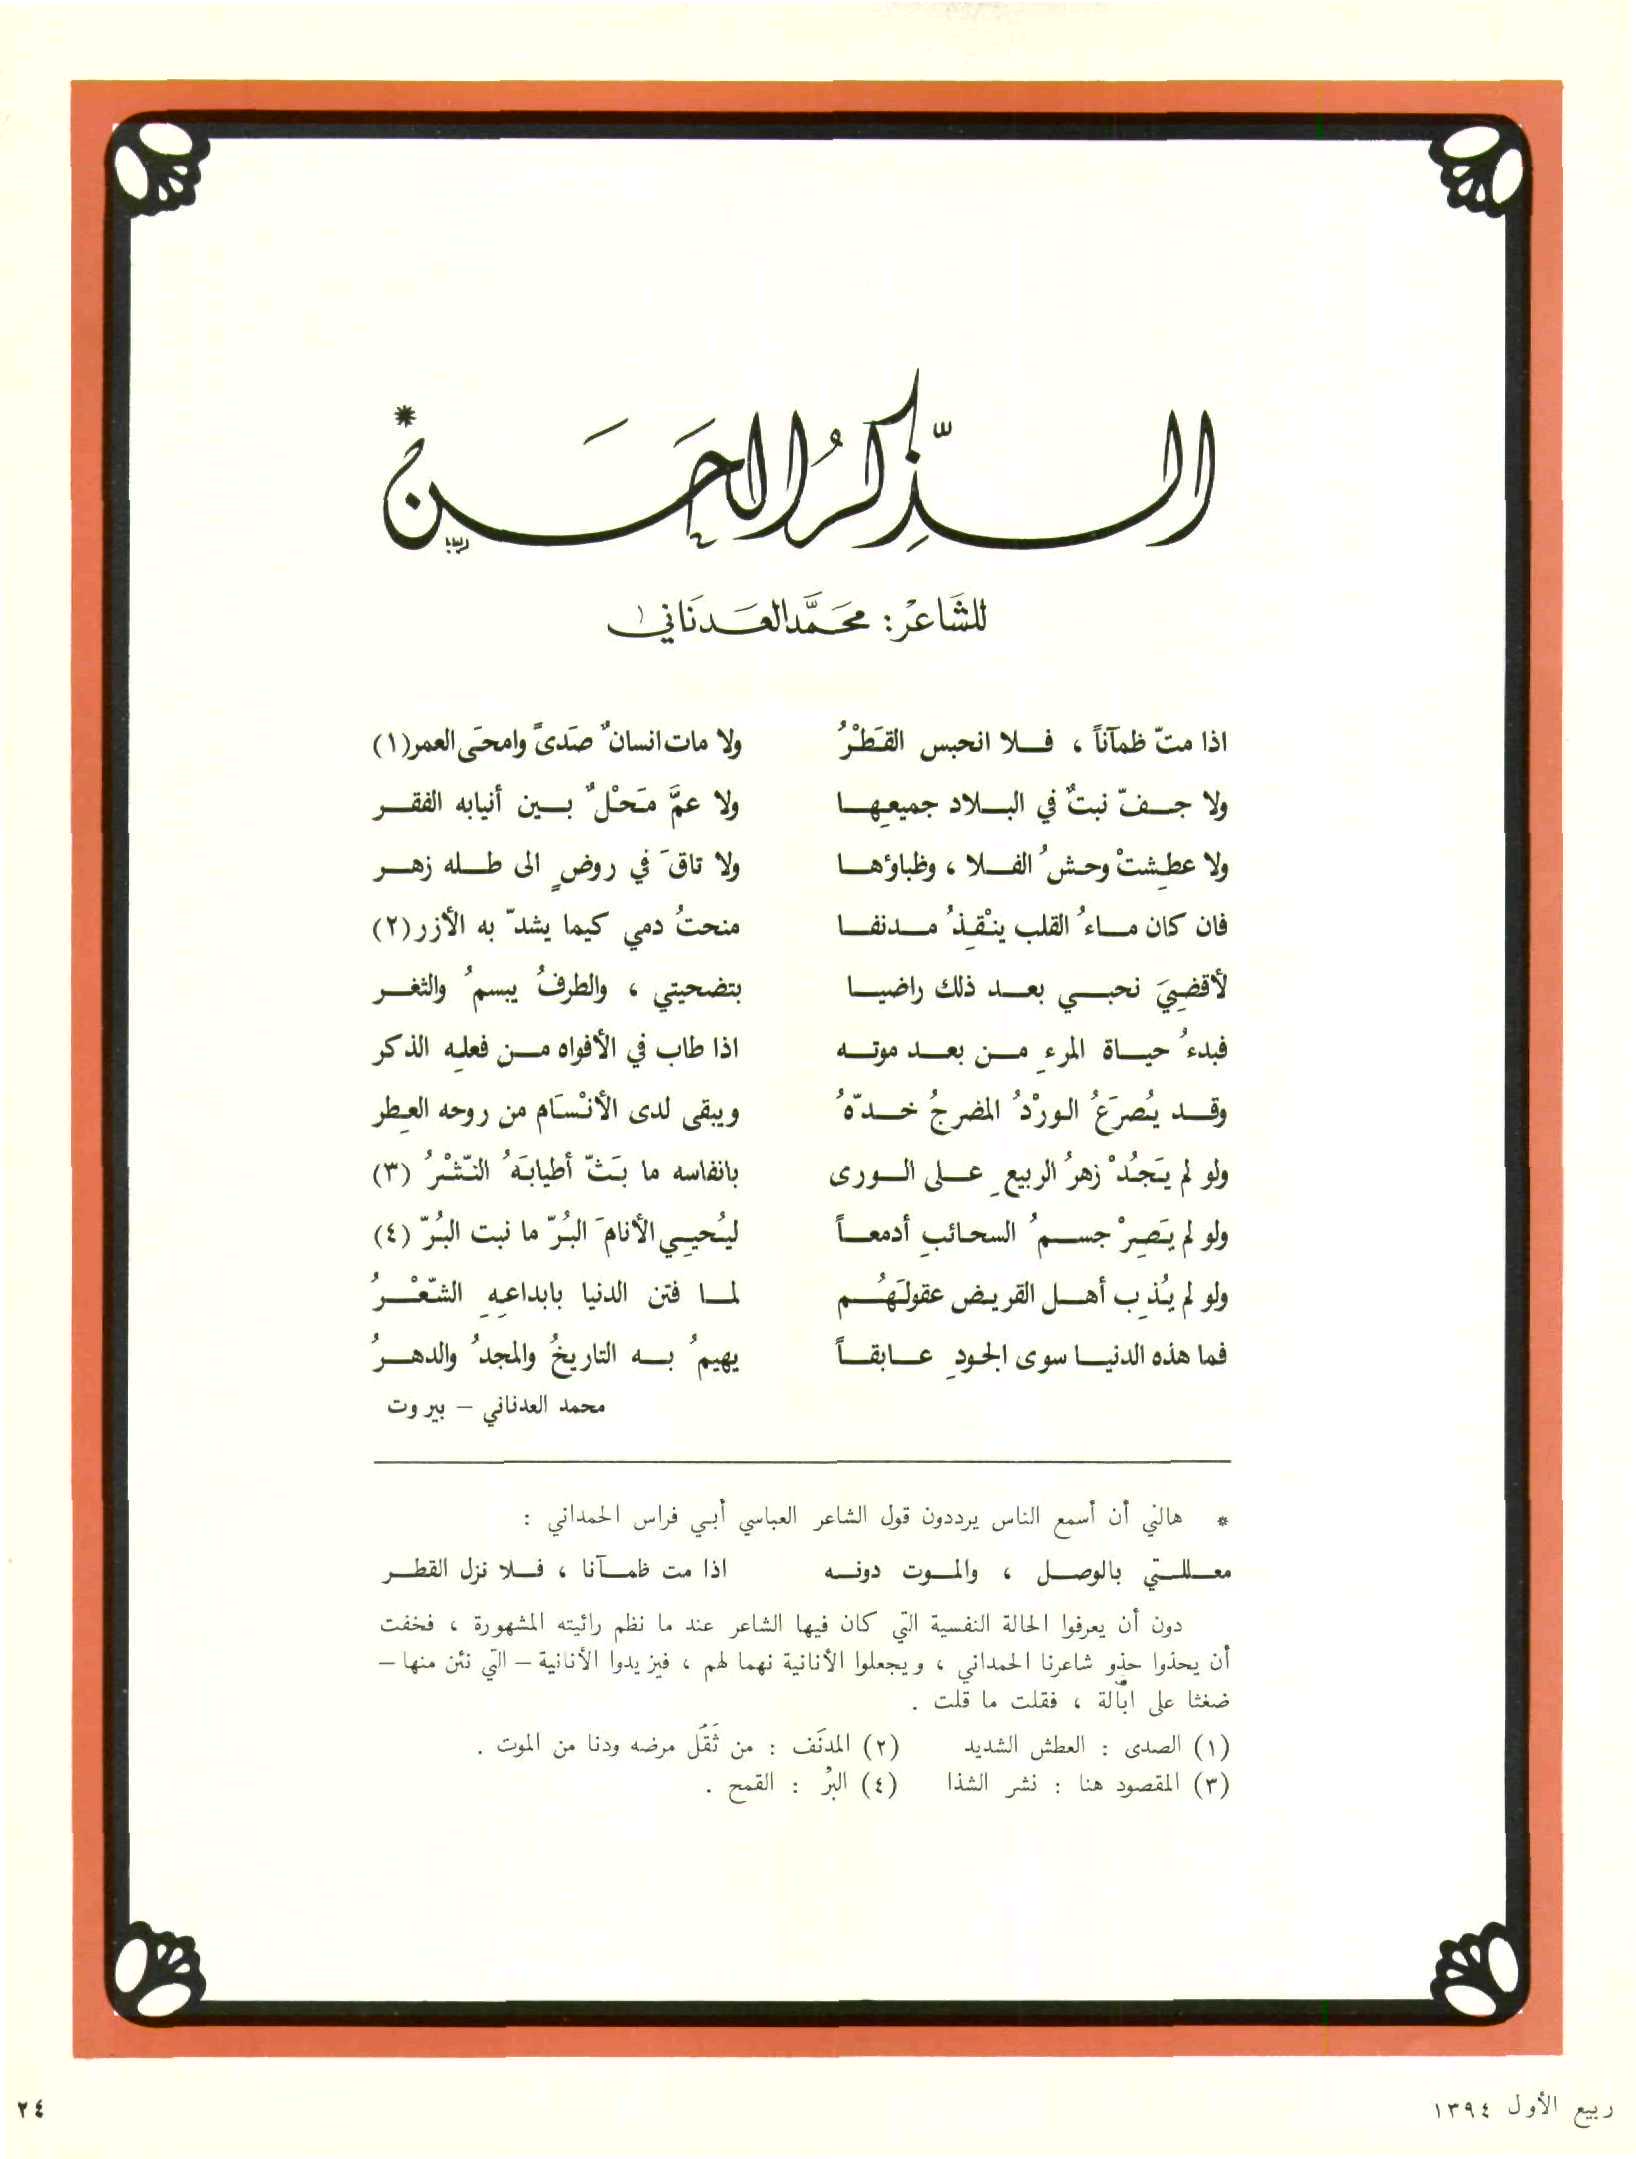 الذِّكرُ الحَسَن *
للشَّاعر: محمَّد العَدنَاني
اذا متّ ظمآناً ، فلا انحبس القَطْرُ ولا مات انسانٌ صَدىً وامحَى العمر (١)
ولا جفّ نبتٌ في البلاد جميعِها ولا عمَّ مَحْلٌ بين أنيابه الفقر
ولا عطِشتْ وحشُ الفلا ، وظباؤها ولا تاقَ في روضٍ الى طله زهر
فان كان ماءُ القلب ينْقِذُ مدنفا منحتُ دمي كيما يشدّ به الأزر (٢)
لأقضِيَ نحبي بعد ذلك راضيا بتضحيتي ، والطرفُ يبسمُ والثغر
فبدءُ حياة المرءِ من بعد موته اذا طاب في الأفواه من فعلِه الذكر
وقد يُصرَعُ الورْدُ المضرجُ خدّهُ ويبقى لدى الأنْسَام من روحه العِطر
ولو لم يَجُدْ زهرُ الربيعِ على الورى بانفاسه ما بَثّ أطيابَهُ النّشْرُ (٣)
ولو لم يَصِرْ جسمُ السحائبِ أدمعاً ليُحيي الأنامَ البُرّ ما نبت البُرّ (٤)
ولو لم يُذِب أهل القريض عقولَهُم لما فتن الدنيا بابداعِهِ الشّعْرُ
فما هذه الدنيا سوى الجودِ عابقاً يهيمُ به التاريخُ والمجدُ والدهرُ
محمد العدناني – بيروت
* هالني أن أسمع الناس يرددون قول الشاعر العباسي أبي فراس الحمداني :
معللتي بالوصل ، والموت دونه اذا مت ظمآنا ، فلا نزل القطر
دون أن يعرفوا الحالة النفسية التي كان فيها الشاعر عند ما نظم رائيته المشهورة ، فخفت
أن يحذوا حذو شاعرنا الحمداني ، ويجعلوا الأنانية نهما لهم ، فيزيدوا الأنانية – التي نئن منها –
ضغثا على ابّالة ، فقلت ما قلت .
(١) الصدى : العطش الشديد (٢) المدنَف : من ثَقُل مرضه ودنا من الموت .
(٣) المقصود هنا : نشر الشذا (٤) البرُ : القمح .
ربيع الأول ١٣٩٤ ٢٤